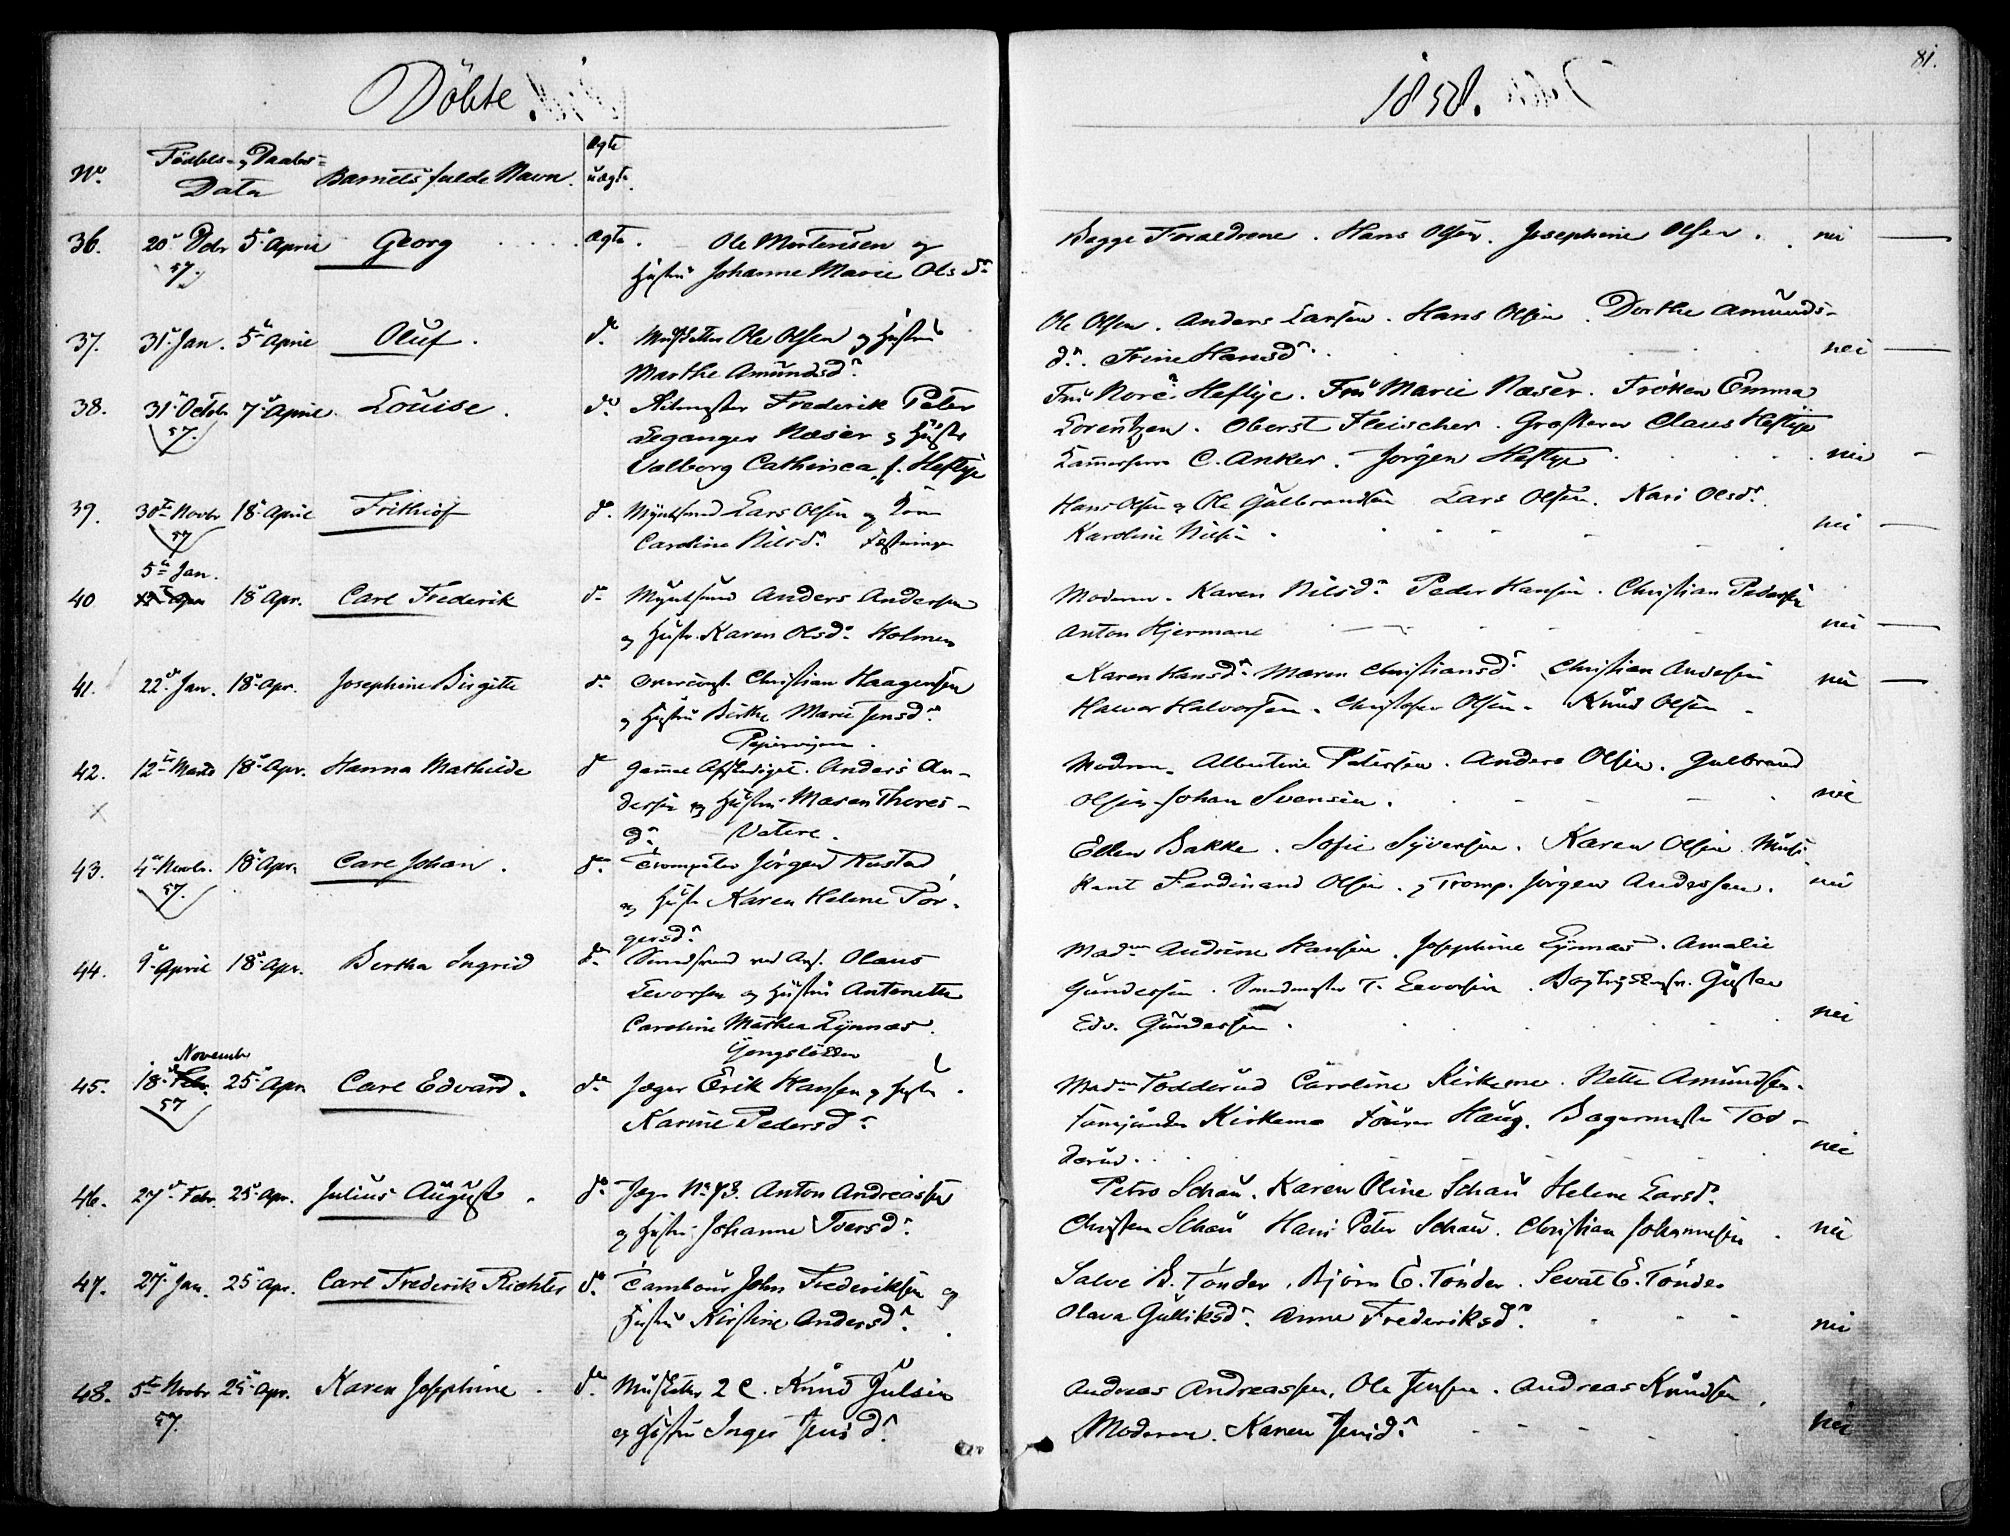 81.
Döbte 1858.
No. Födsels- og Daabs- Data Barnets fulde Navn. Ægte uægte.
36. 20de Dcbr 57. 5te April Georg Ægte. Ole Mortensen og
Hustru Johanne Marie Olsdr
Begge Foraeldrene. Hans Olsen. Josephine Olsen. nei
37. 31te Jan. 5te April Oluf. do. Musketeer Ole Olsen og Hustru
Marthe Amundsdr.
Ole Olsen. Anders Larsen. Hans Olsen. Dorthe Amunds-
dr. Trine Hansdr. nei
38. 31te Octob 57. 7de April Louise. do. Ritmester Frederik Peter
Leganger Næser og Hustru
Valborg Cathinca f. Heftye
Fru Heftye. Fru Marie Næser. Fröken Emma
Lorentzen. Oberst Fleischer. Grosserer Claus Heftye
C. Anker. Jörgen Heftye. nei
39. 30te Novbr 57 18de April Frithiof do. Myntsvend Lars Olsen og Kone
Caroline Nilsdr. Fæstningen
Hans Olsen og Ole Gulbrandsen Lars Olsen. Kari Olsdr.
Karoline Nilsen. nei
40 5te Jan. 18de Apr. Carl Frederik do. Myntsvend Anders Andersen
og Hustr. Karen Olsdr. Holmen
Moderen. Karen Nilsdr. Peder Hansen. Christian Pedersen
Anton Hjermane nei
41. 22de Jan. 18de Apr. Josephine Birgitte do. Overconst. Christian Haagensen
og Hustru Birthe Marie Jensdr.
Pipervigen.
Karen Hansdr. Maren Christiansdr. Christian Andersen
Halvor Halvorsen. Christofer Olsen. Knud Olsen. nei
42. 12te Marts 18de Apr. Hanna Mathilde do Gamme Afskediget. Anders An-
dersen og Hustru Maren Thores-
dr. Vatere.
Moderen. Albertine Petersen. Anders Olsen. Gulbrand
Olsen Johan Svensen. nei
43. 4de Novbr. 57. 18de Apr. Carl Johan. do. Trompeter Jörgen Rustad
og Hustr Karen Helene Tor-
gersdr.
Ellen Bakke. Sofie Syversen. Karen Olsen. Musi-
kant Ferdinand Olsen. og Tromp. Jörgen Andersen. nei
44. 9de April 18de Apr. Bertha Ingrid do. Smedsvend ved Olaus
Eevorsen og Hustru Antonette
Caroline Mathea Lynnæs.
Madm Andrine Hansen. Josephine Lynnæs. Amalie
Gundersen. Smedmester T. Eevorsen. Gustav
Edv. Gundersen. nei
45. 18de Novembr 57 25de Apr Carl Edvard. do. Jæger Erik Hansen og Hustru.
Karine Pedersdr.
Madm Todderud Caroline Kirkemo. Nette Amundsen.
Kirkemo Fourer Haug. Bagermester Tod-
derud. nei
46. 27de Febr. 25de Apr. Julius August. do. Jæger No. 73. Anton Andreassen
og Hustru Johanne Iversdr.
Petro Schau. Karen Oline Schau Helene Larsdr.
Christen Schau Hans Peter Schau. Christian Johannesen. nei
47. 27de Jan. 25de Apr. Carl Frederik Richter do. Tambour John Frederiksen og
Hustru Kirstine Andersdr.
Salve E. Tönder. Björn E. Tönder. Sevat E. Tönder
Olava Gulliksdr. Anne Frederiksdr. nei
48. 5te Novbr 57. 25de Apr. Karen Josephine. do. Musketer 2 C. Knud Julsen
og Hustru Inger Jensdr.
Andreas Andreassen, Ole Jensen. Andreas Knudsen,
Moderen. Karen Jensdr. nei